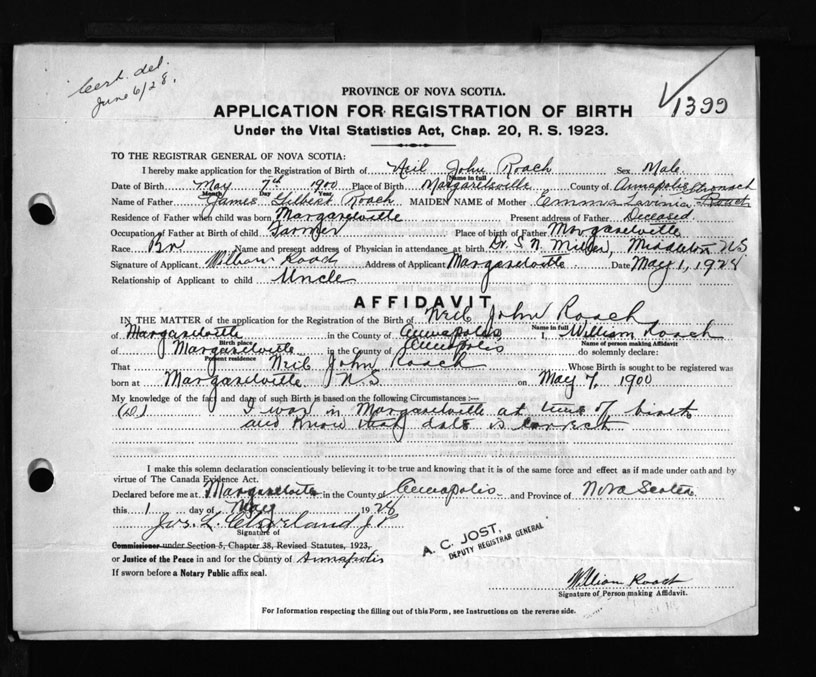 Cert. del.
June 6/28.
1399
PROVINCE OF NOVA SCOTIA.
APPLICATION FOR REGISTRATION OF BIRTH
Under the Vital Statistics Act, Chap. 20, R. S. 1923.
TO THE REGISTRAR GENERAL OF NOVA SCOTIA:
I hereby make application for the Registration of Birth of Neil John Roach Sex Male
Name in full
Date of Birth May 7th 1900 Place of Birth Margaretsville County of Annapolis
Month Day Year
Stronach
Name of Father James Gilbert Roach MAIDEN NAME of Mother Emma Lavinia Roach
Residence of Father when child was born Margaretville Present address of Father Deceased
Occupation of Father at Birth of child Farmer Place of birth of Father Margaretville
Race Br Name and present address of Physician in attendance at birth Dr. S. N. Miller, Middleton N S
Signature of Applicant William Roach Address of Applicant Margaretville Date May 1, 1928
Relationship of Applicant to child Uncle
AFFIDAVIT
IN THE MATTER of the application for the Registration of the Birth of Neil John Roach
Name in full
of Margaretville in the County of Annapolis I, William Roach
Birth place Name of person making Affidavit
of Margaretville in the County of Annapolis do solemnly declare:
Present residence
That Neil John Roach Whose Birth is sought to be registered was
born at Margaretville N. S. on May 7, 1900
My knowledge of the fact and date of such Birth is based on the following Circumstances:—
I was in Margaretville at time of birth
and know that date is correct
I make this solemn declaration conscientiously believing it to be true and knowing that it is of the same force and effect as if made under oath and by
virtue of The Canada Evidence Act.
Declared before me at Margaretville in the County of Annapolis and Province of Nova Scotia
this 1 day of May 1928
Jos. L. Cleveland J P
Signature of
Commissioner under Section 5, Chapter 38, Revised Statutes, 1923,
or Justice of the Peace in and for the County of Annapolis
If sworn before a Notary Public affix seal.
A. C. JOST,
DEPUTY REGISTRAR GENERAL
William Roach
Signature of Person making Affidavit.
For Information respecting the filling out of this Form, see Instructions on the reverse side.